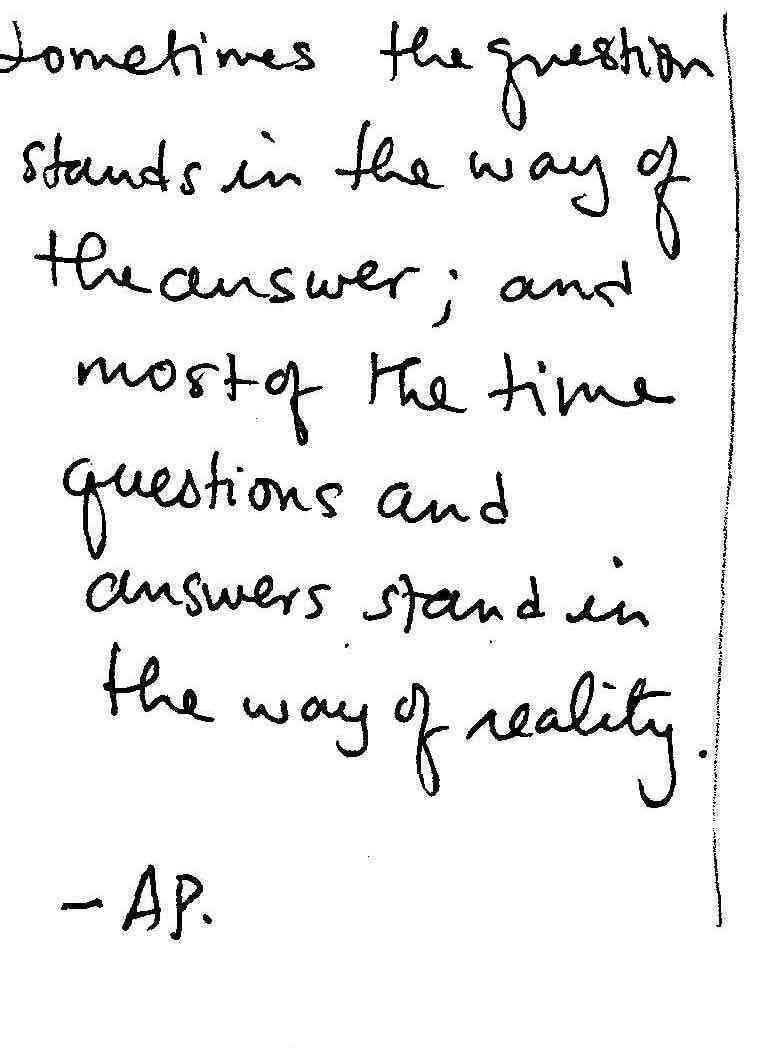 Sometimes the question
stands in the way of
the answer; and
most of the time
questions and
answers stand in
the way of reality.
- AP.